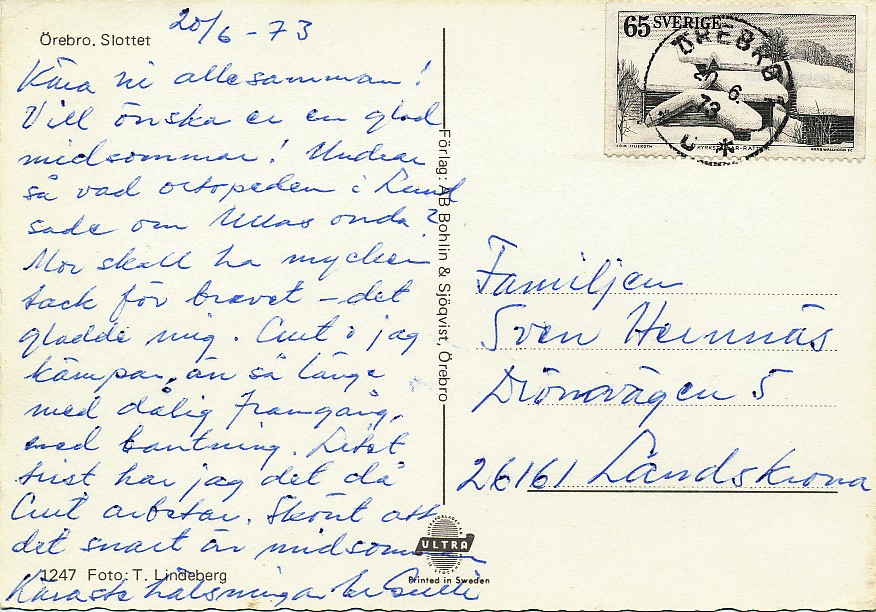 Örebro. Slottet
20/6 - 73
Kära ni allesamman!
Vill önska er en glad
midsommar! Undrar
så vad ortopeden i Lund
sade om Ullas onda?
Mor skall ha mycken
tack för brevet - det
gladde mig. Curt o jag
kämpar än så länge
med dålig framgång,
med bantning. Litet
trist har jag det då
Curt arbetar. Skönt att
det snart är midsommar
Käraste hälsningar
1247 Foto: T. Lindeberg
Förlag: AB Bohlin & Sjöqvist, Örebro
ULTRA
Printed in Sweden
65 SVERIGE
ÖREBRO
20 6.
73
Familjen
Sven Hernnäs
Drömvägen 5
26161 Landskrona